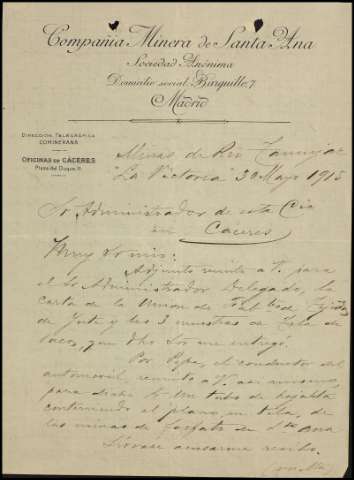 Compañia Minera de Santa Ana
Sociedad Anónima
Domicilio social: Barquillo, 7
Madrid
DIRECCIÓN TELEGRÁFICA
COMINERANA
OFICINAS DE CÁCERES
Plaza del Duque, 11
Minas de Rio
"La Victoria" 30 Mayo 1915
Sr Administrador de esta Cia
en Caceres
Muy Sr mio:
Adjunto remito a V. para
el Sr Administrador Delegado, la
carta de la Union de Fab
de Yute y las 3 muestras de tela de
sacos, que dho Sor me entregó.
Por Pepe, el conductor del
automovil, remito a V. asi mismo,
para dicho Sr un tubo de hojalata
conteniendo el plano, en tela, de
las minas de fosfato de Sta Ana
Sirvase acusarme recibo.